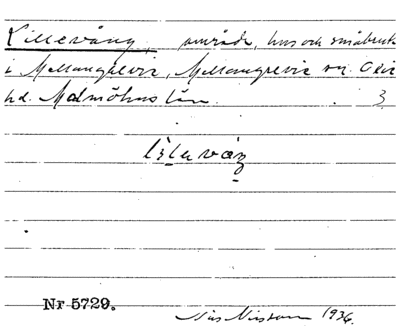 Lillevång, område, hus och småbruk
i Mellangrevie, Mellangrevie sn. Oxie
hd. Malmöhus län. 3
Nr 5729.
Nils Nilsson 1936.